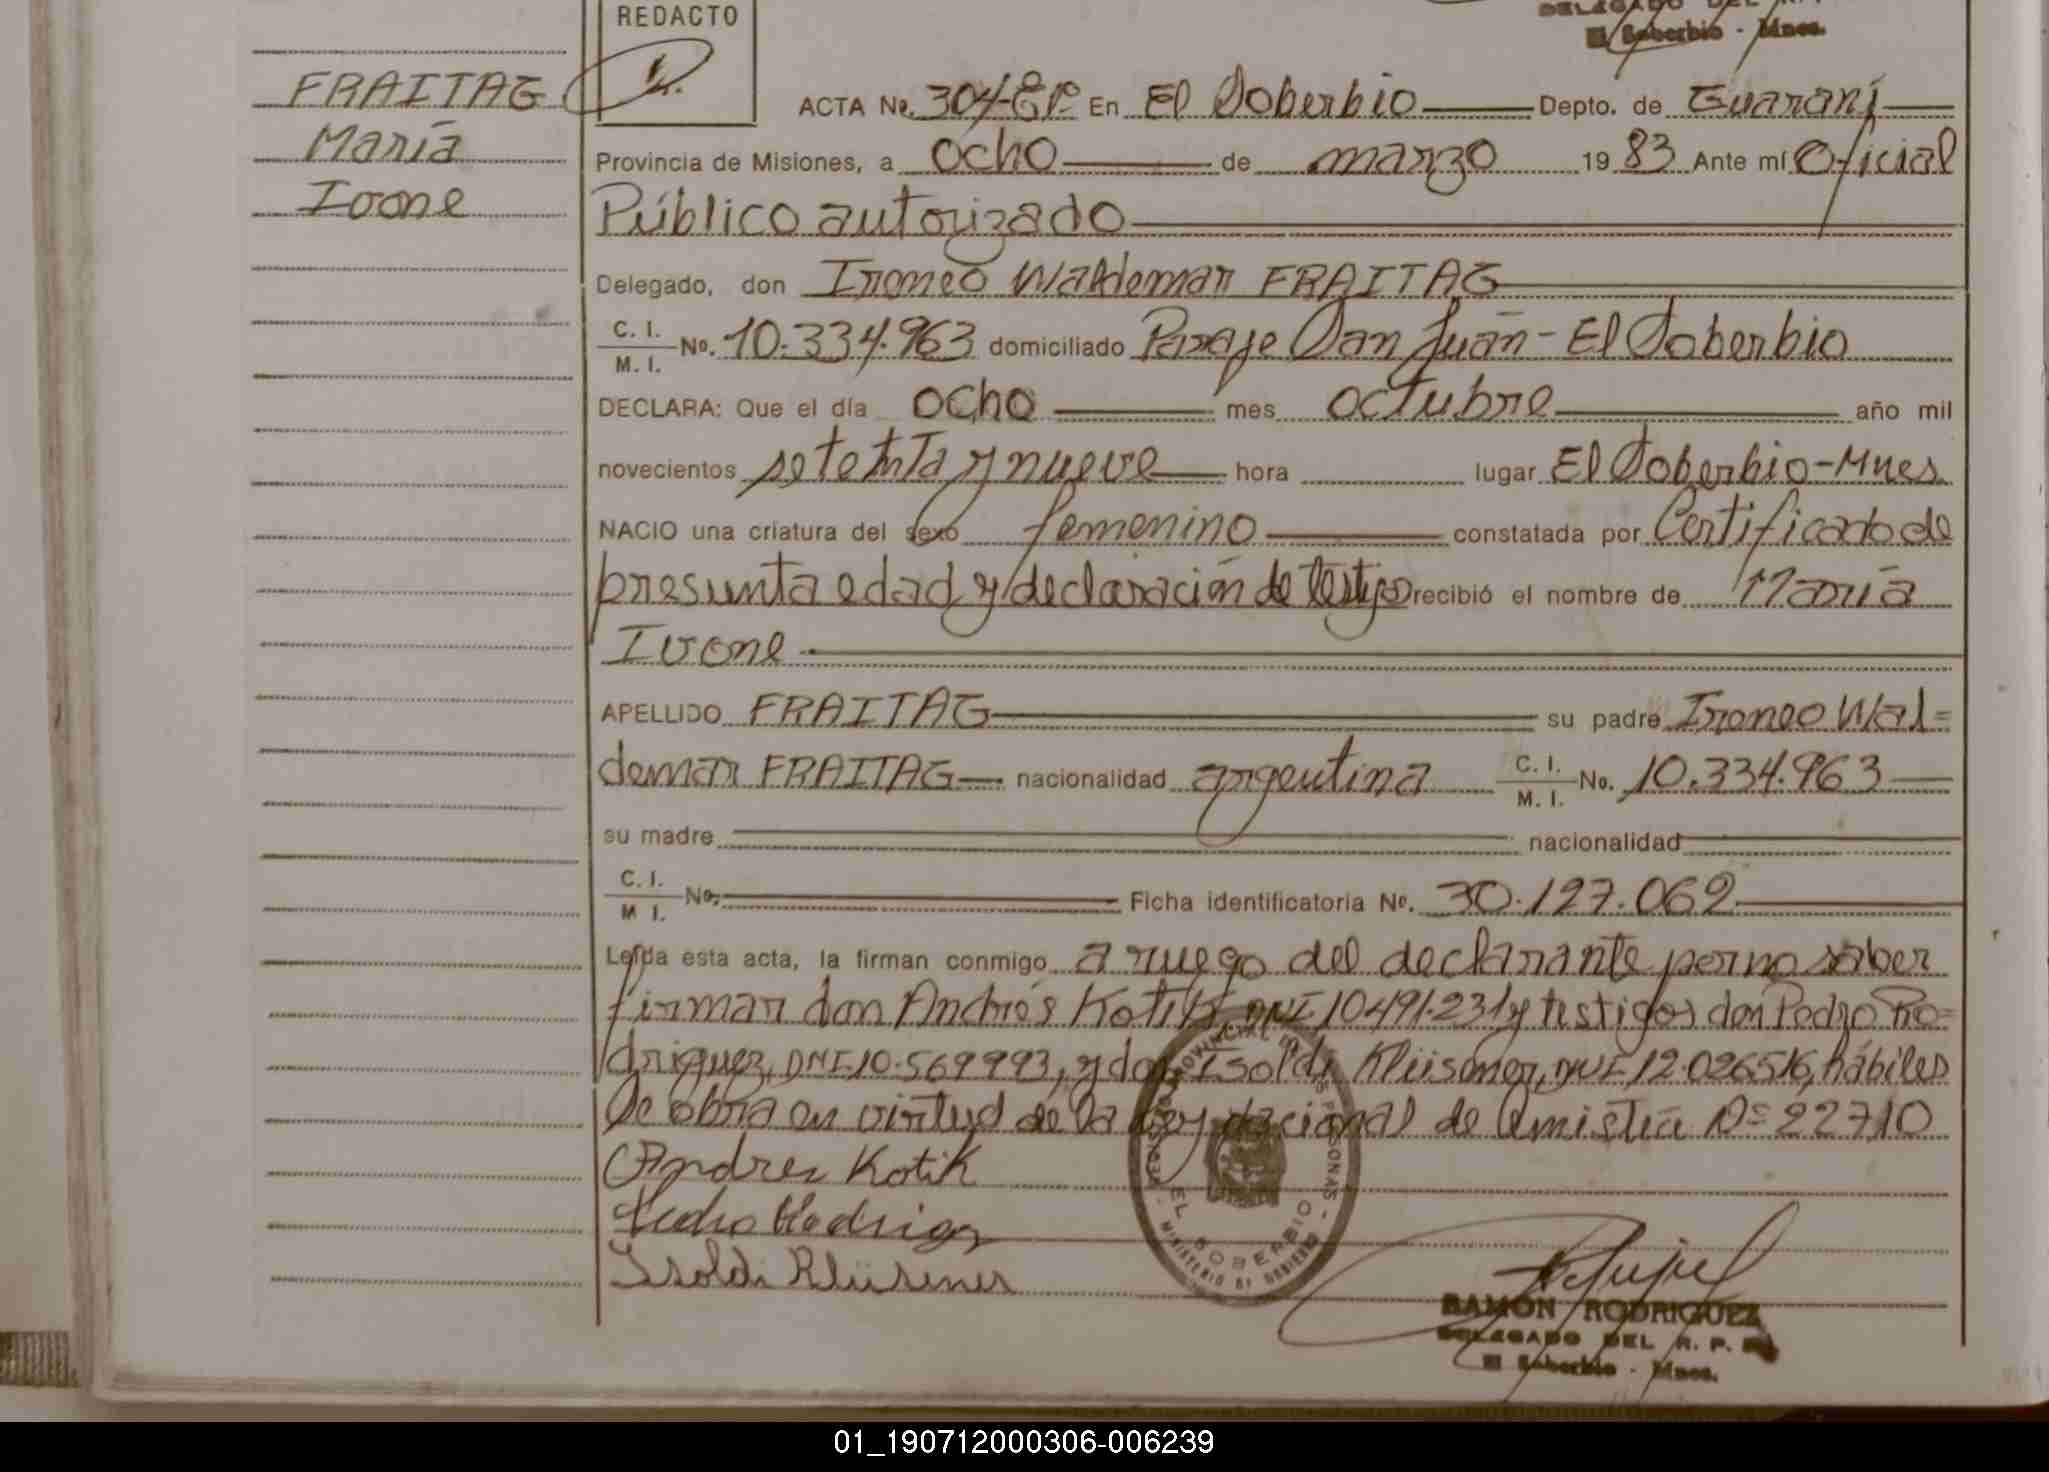 REDACTO
DELEGADO DEL R. P.
El Soberbio - Mnes.
FRAITAG
María
Ivone
ACTA No. 304-Eº1º En El Soberbio Depto. de Guaraní
Provincia de Misiones, a ocho de marzo 1983 Ante mí Oficial
Público autorizado
Delegado, don Ironeo Waldemar FRAITAG
C. I. M. I. No. 10.334.963 domiciliado Paraje San Juan - El Soberbio
DECLARA: Que el día ocho mes octubre año mil
novecientos setenta y nueve hora lugar El Soberbio-Mnes
NACIO una criatura del sexo femenino constatada por Certificado de
presunta edad y declaración de testigo recibió el nombre de María
Ivone
APELLIDO FRAITAG su padre Ironeo Wal=
demar FRAITAG nacionalidad argentina C. I. M. I. No. 10.334.963
su madre nacionalidad
C. I. M. I. No. Ficha identificatoria No. 30.127.062
Leída esta acta, la firman conmigo a ruego del declarante por no saber
firmar don Andrés Kotik, DNI 10491.231 y testigos don Pedro Ro=
driguez, DNI 10.569993, y don Isoldi Klüsener, DNI 12.026516, hábiles
Se obra en virtud de la Ley nacional de Amistía Nº 22710
Andres Kotik
Pedro Rodrigz
Isoldi Klüsener
REGISTRO PROVINCIAL DE LAS PERSONAS
EL SOBERBIO
MINISTERIO DE GOBIERNO
RAMON RODRIGUEZ
DELEGADO DEL R. P.
El Soberbio - Mnes.
01_190712000306-006239